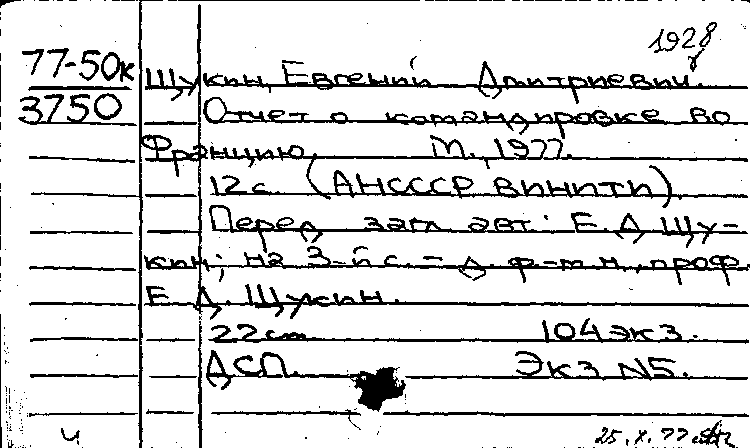 1928 г
77-50к
3750
Щукин, Евгений Дмитриевич.
Отчет о командировке во
Францию, М., 1977.
12 с. (АН СССР ВИНИТИ).
Перед загл. авт.: Е. Д. Щу-
кин; на 3-й с. - д. ф-м. н., проф.
Е. Д. Щукин.
22 см 104 экз.
ДСП. Экз N5.
ч 25.X.77